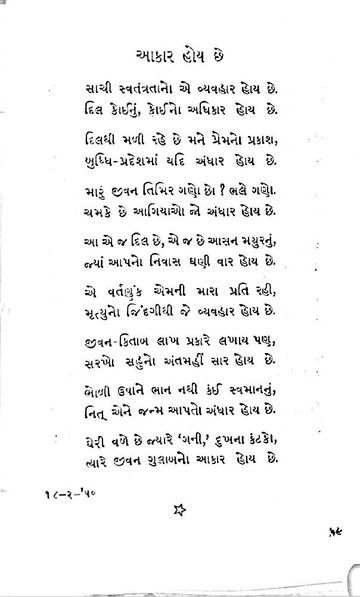 આકાર હોય છે
સાચી સ્વતંત્રતાનો એ વ્યવહાર હોય છે.
દિલ કોઈનું, કોઈનો અધિકાર હોય છે.
દિલથી મળી રહે છે મને પ્રેમનો પ્રકાશ,
બુધ્ધિ-પ્રદેશમાં યદિ અંધાર હોય છે.
મારું જીવન તિમિર ગણો છો ? ભલે ગણો.
ચમકે છે આગિયાઓ જો અંધાર હોય છે.
આ એ જ દિલ છે, એ જ છે આસન મયુરનું,
જ્યાં આપનો નિવાસ ઘણી વાર હોય છે.
એ વર્તણુંક એમની મારા પ્રતિ રહી,
મૃત્યુનો જિંદગીથી જે વ્યવહાર હોય છે.
જીવન-કિતાબ લાખ પ્રકારે લખાય પણ,
સરખો સહુનો અંતમહીં સાર હોય છે.
ભોળી ઉષાને ભાન નથી કંઈ સ્વમાનનું,
નિત્ એને જન્મ આપતો અંધાર હોય છે.
ઘેરી વળે છે જ્યારે 'ગની,' દુખના કંટકો,
ત્યારે જીવન ગુલાબનો આકાર હોય છે.
૧૮-૨-'૫૦
૫૯